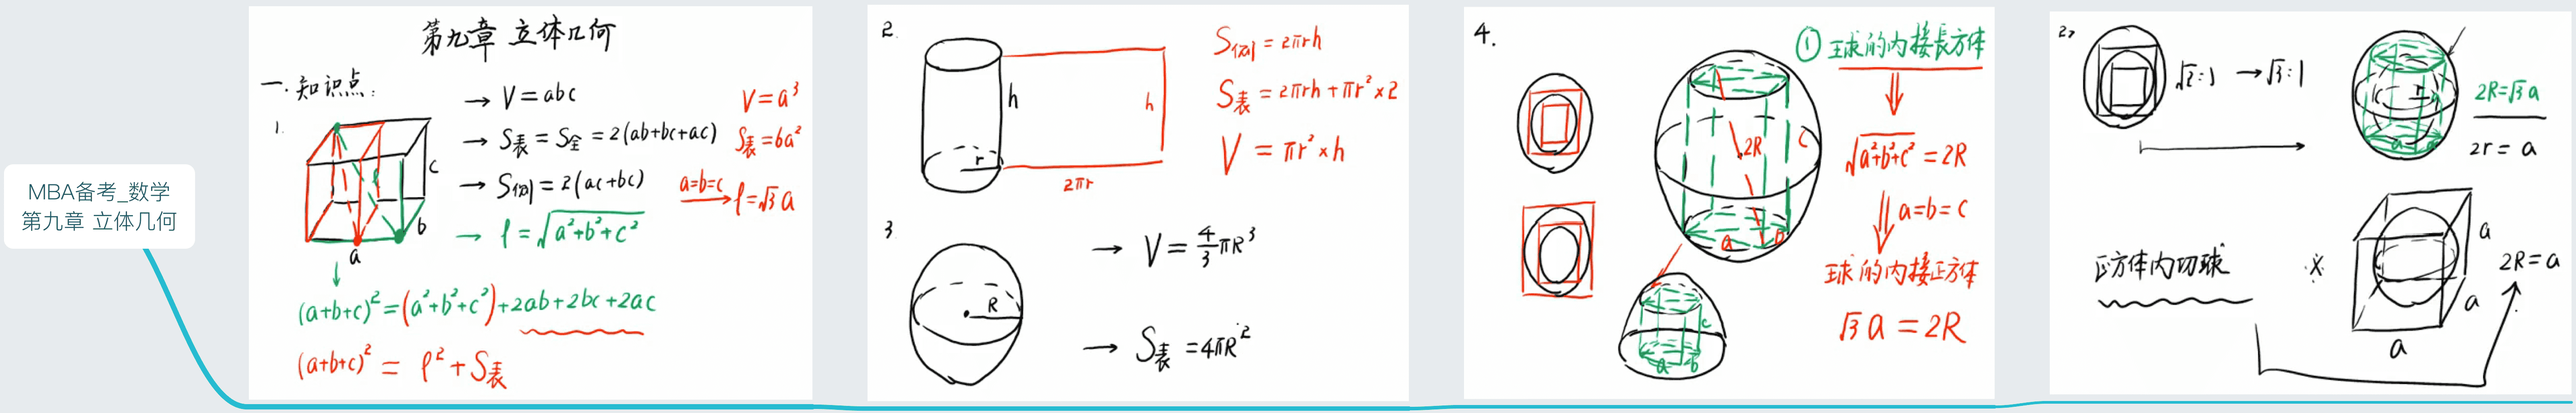 MBA备考_数学
第九章 立体几何
第九章 立体几何
一. 知识点:
1.
→ V = abc
V = a³
→ S表 = S全 = 2(ab+bc+ac)
S表 = 6a²
→ S侧 = 2(ac+bc)
a=b=c
l = √3 a
→ l = √(a²+b²+c²)
l
c
b
a
(a+b+c)² = (a²+b²+c²) + 2ab+2bc+2ac
(a+b+c)² = l² + S表
2.
h
r
h
2πr
S侧 = 2πrh
S表 = 2πrh + πr² × 2
V = πr² × h
3.
R
→ V = 4/3 πR³
→ S表 = 4πR²
4.
① 球的内接長方体
2R
c
a
b
√(a²+b²+c²) = 2R
a=b=c
球的内接正方体
√3 a = 2R
c
a
b
2>
√2:1 → √3:1
r
a
2R=√3 a
2r = a
正方体内切球
a
a
a
2R = a